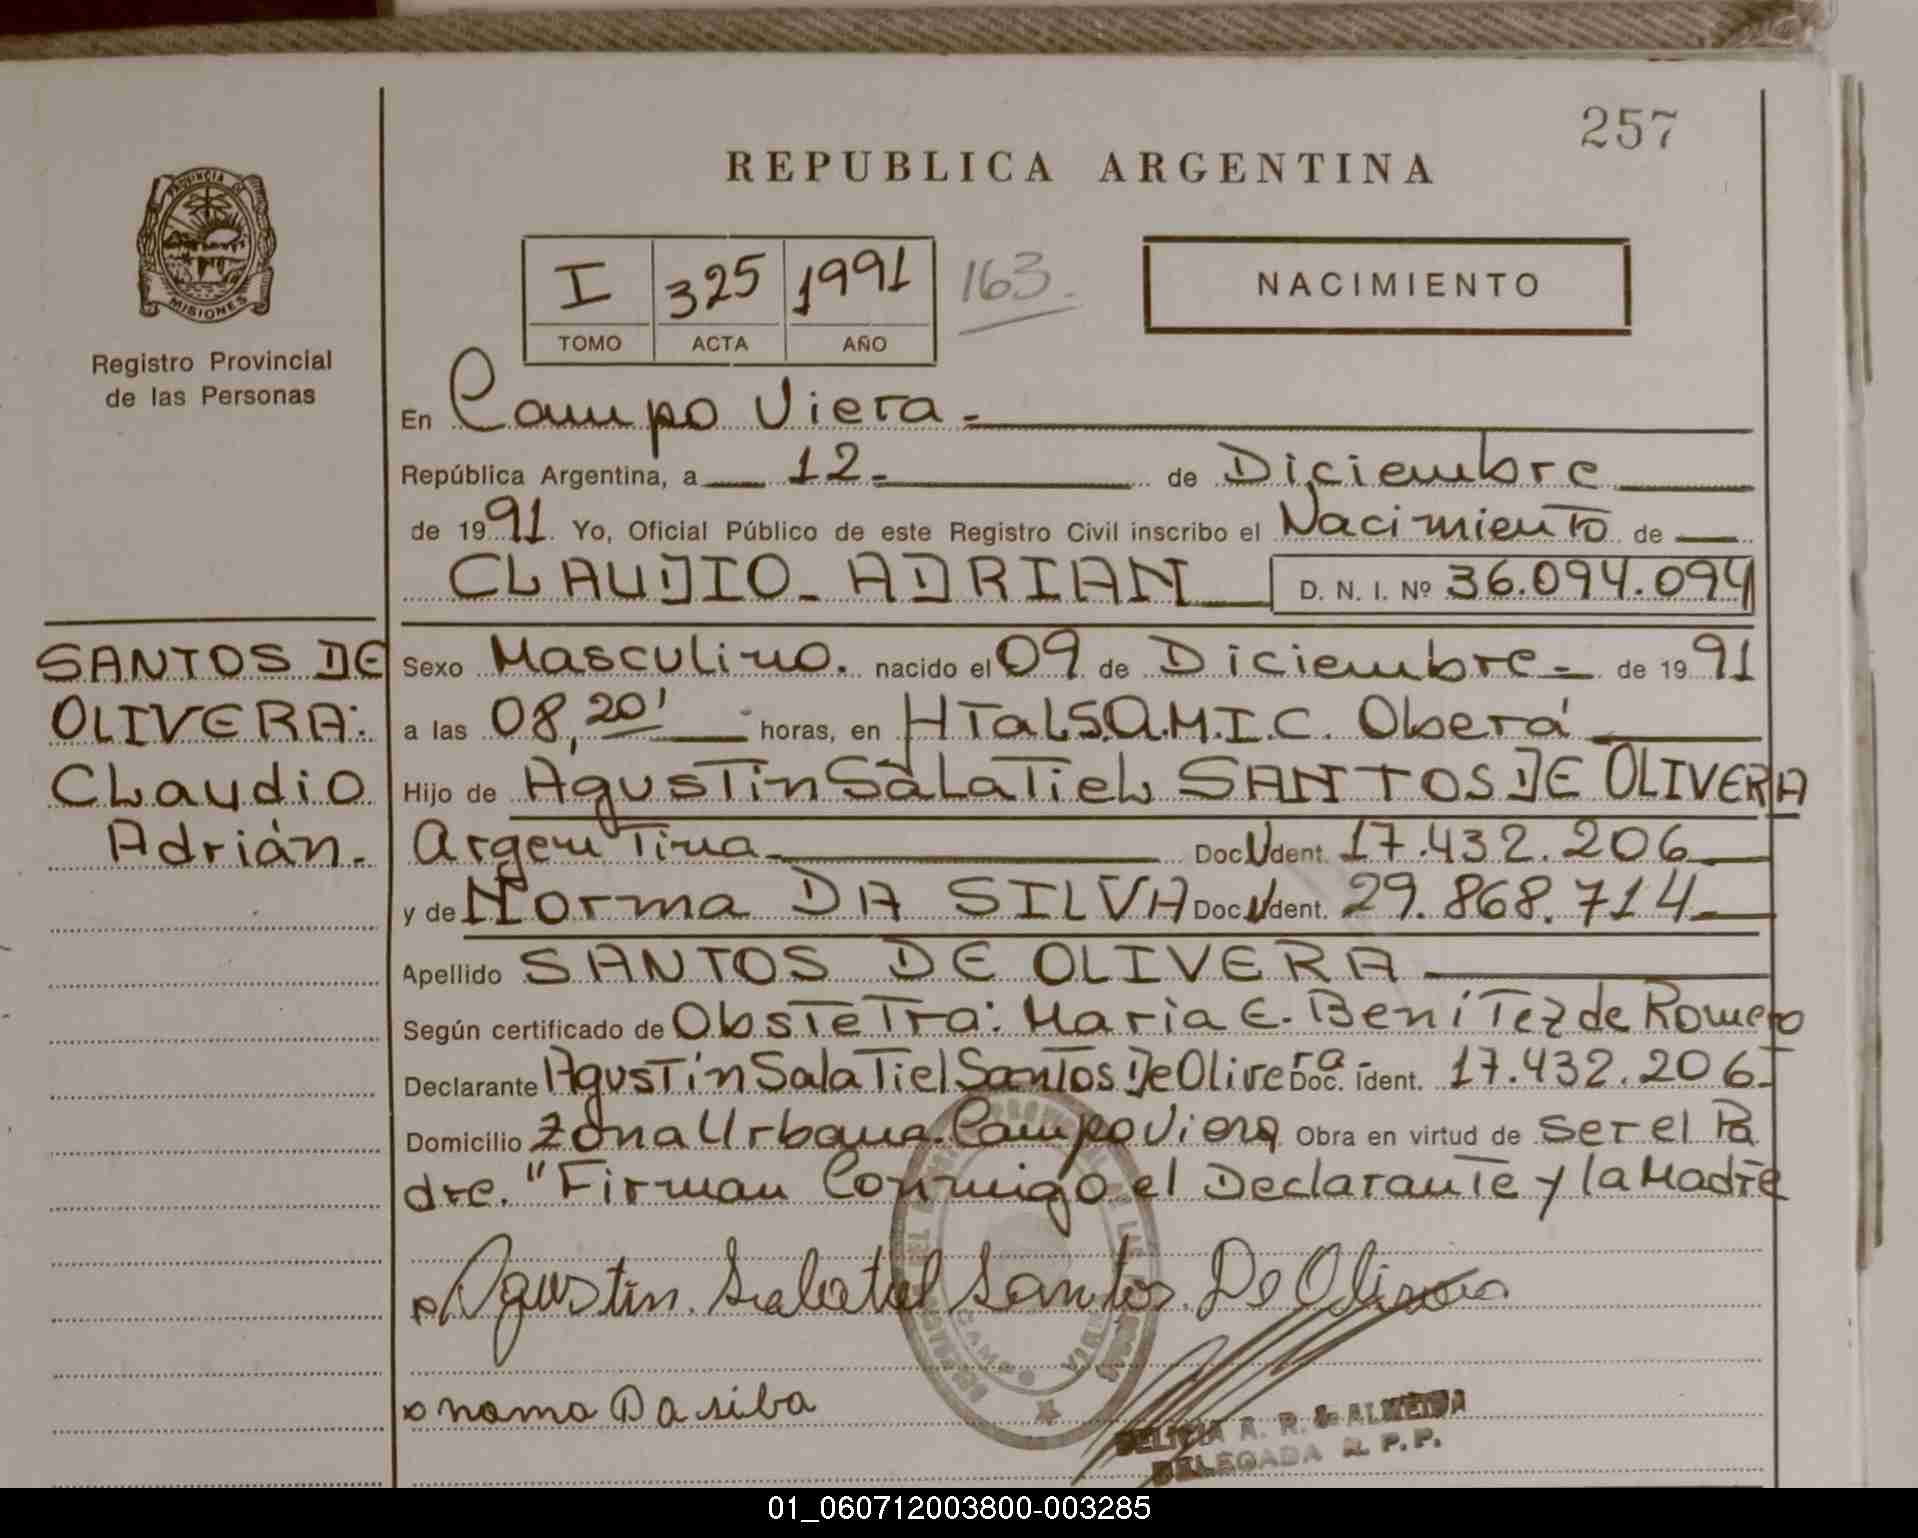 257
REPUBLICA ARGENTINA
PROVINCIA DE
MISIONES
Registro Provincial
de las Personas
I 325 1991 163.
TOMO ACTA AÑO
NACIMIENTO
En Campo Viera.-
República Argentina, a 12- de Diciembre
de 1991. Yo, Oficial Público de este Registro Civil inscribo el Nacimiento de
CLAUDIO ADRIAN D. N. I. Nº 36.094.094
SANTOS DE
OLIVERA:
Claudio
Adrián.-
Sexo Masculino. nacido el 09 de Diciembre- de 1991
a las 08,20' horas, en HTal S.A.M.I.C. Oberá
Hijo de Agustin Salatiel SANTOS DE OLIVERA
Argentina Doc U dent. 17.432.206
y de Norma DA SILVA Doc U dent. 29.868.714
Apellido SANTOS DE OLIVERA
Según certificado de Obstetra: Maria E. Benítez de Romero
Declarante Agustín Salatiel Santos De Olivera Doc. ident. 17.432.206-
Domicilio Zona Urbana. Campo Viera Obra en virtud de ser el Pa
dre. "Firman Conmigo el Declarante y la Madre
Agustin. Salatiel Santos. De Olivera
noma Da silba
DELICIA A. R. de ALMEIDA
DELEGADA R. P. P.
01_060712003800-003285